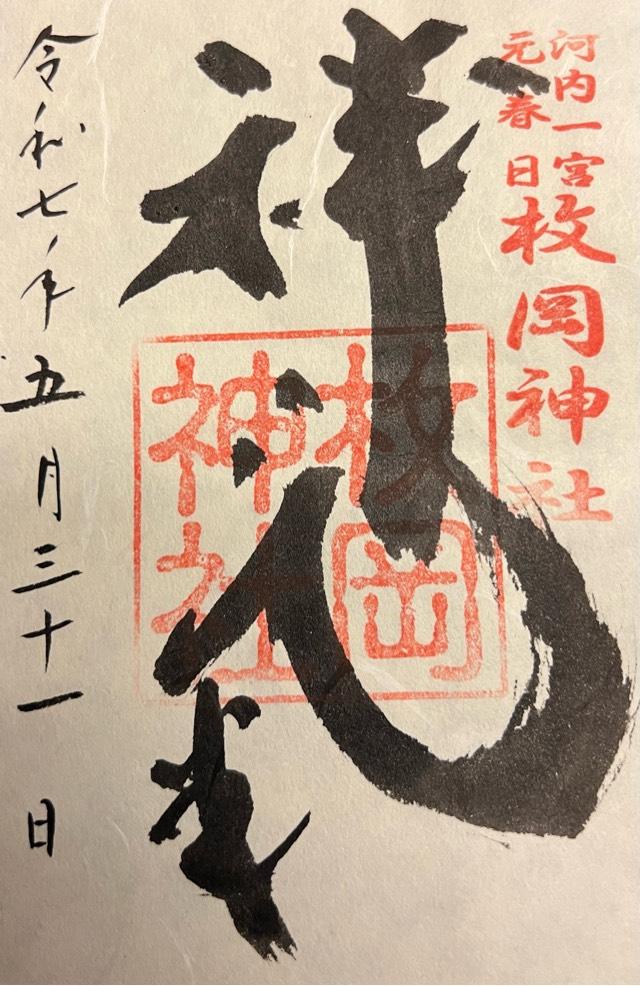 河内一宮
元春日
枚岡神社
祥
枚岡
神社
令和七年五月三十一日